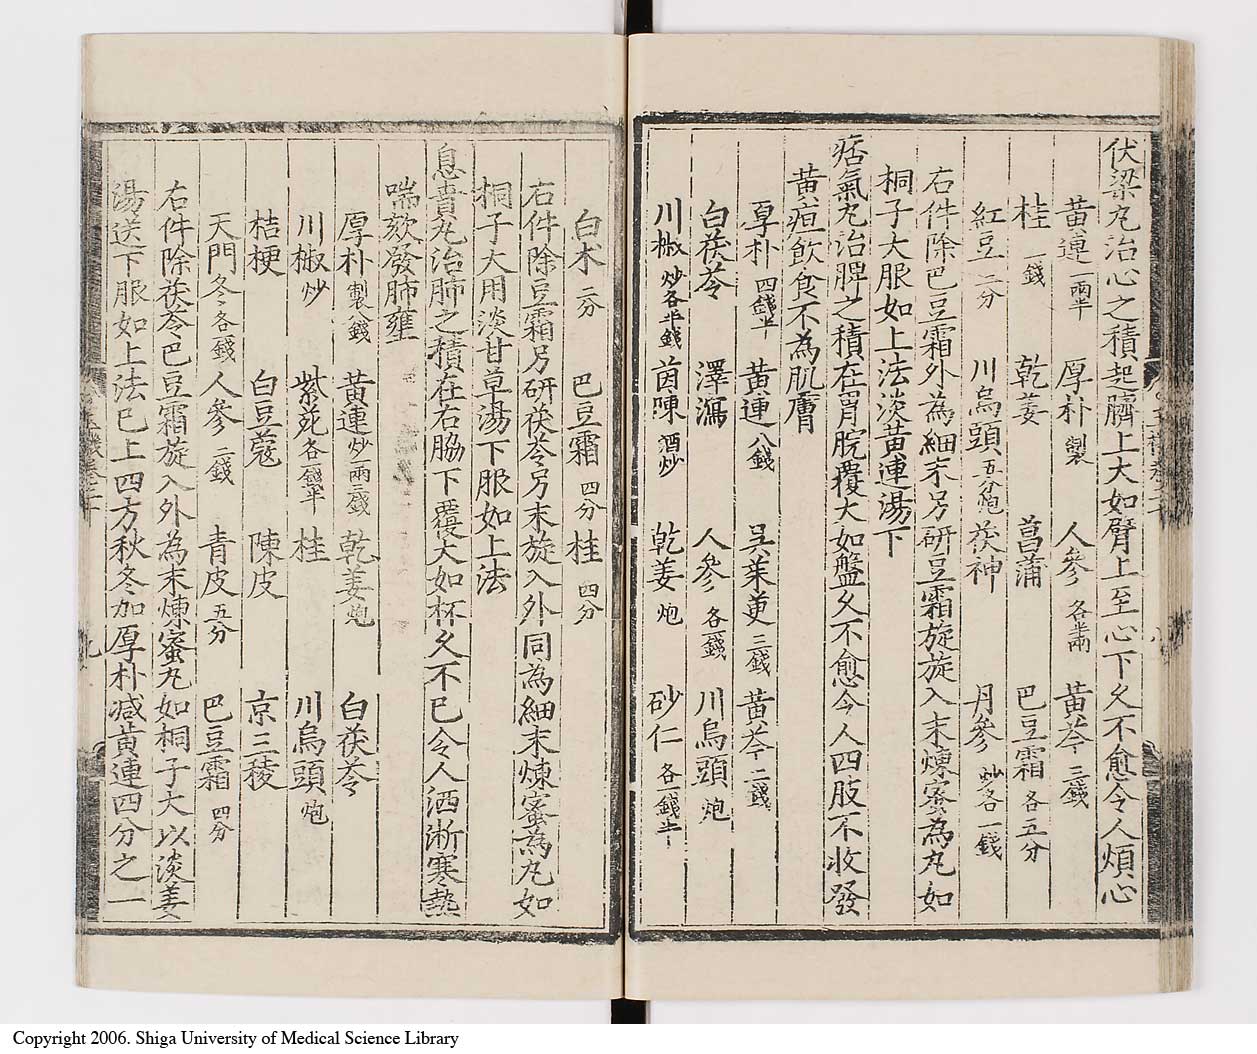 伏梁丸治心之積起臍上大如臂上至心下久不愈令人煩心
黃連一兩半 厚朴製 人參各半兩 黃芩三錢
桂一錢 乾姜 菖蒲 巴豆霜各五分
紅豆二分 川烏頭五分炮 茯神 丹參炒各一錢
右件除巴豆霜外為細末另研豆霜旋旋入末煉蜜為丸如
桐子大服如上法淡黃連湯下
痞氣丸治脾之積在胃脘覆大如盤久不愈令人四肢不收發
黃疸飲食不為肌膚
厚朴四錢半 黃連八錢 吳茱萸三錢 黃芩二錢
白茯苓 澤瀉 人參各一錢 川烏頭炮
川椒炒各半錢 茵陳酒炒 乾姜炮 砂仁各一錢半
白木二分 巴豆霜四分 桂四分
右件除豆霜另研茯苓另末旋入外同為細末煉蜜為丸如
桐子大用淡甘草湯下服如上法
息賁丸治肺之積在右脇下覆大如杯久不已令人洒淅寒熱
喘欬發肺壅
厚朴製八錢 黃連炒一兩三錢 乾姜炮 白茯苓
川椒炒 紫菀各一錢半 桂 川烏頭炮
桔梗 白豆蔻 陳皮 京三稜
天門冬各錢 人參二錢 青皮五分 巴豆霜四分
右件除茯苓巴豆霜旋入外為末煉蜜丸如桐子大以淡姜
湯送下服如上法已上四方秋冬加厚朴减黃連四分之一
九
Copyright 2006. Shiga University of Medical Science Library